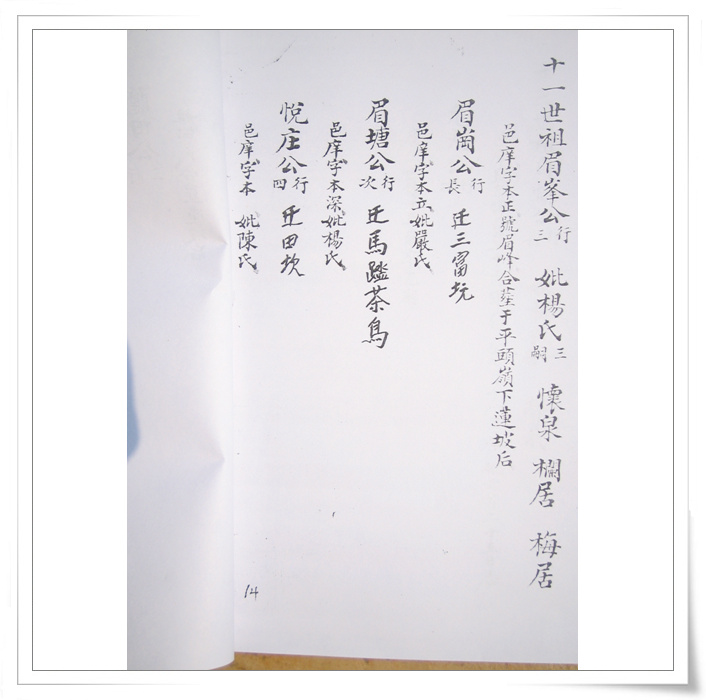 十一世祖眉峯公行三 妣楊氏三嗣 懷泉 欄居 梅居
邑庠字本正號眉峰合葬于平頭嶺下蓮坡后
眉崗公行長 迁三富坑
邑庠字本立妣嚴氏
眉塘公行次 迁馬踏茶鳥
邑庠字本深妣楊氏
悅庄公行四 迁田坎
邑庠字本 妣陳氏
14